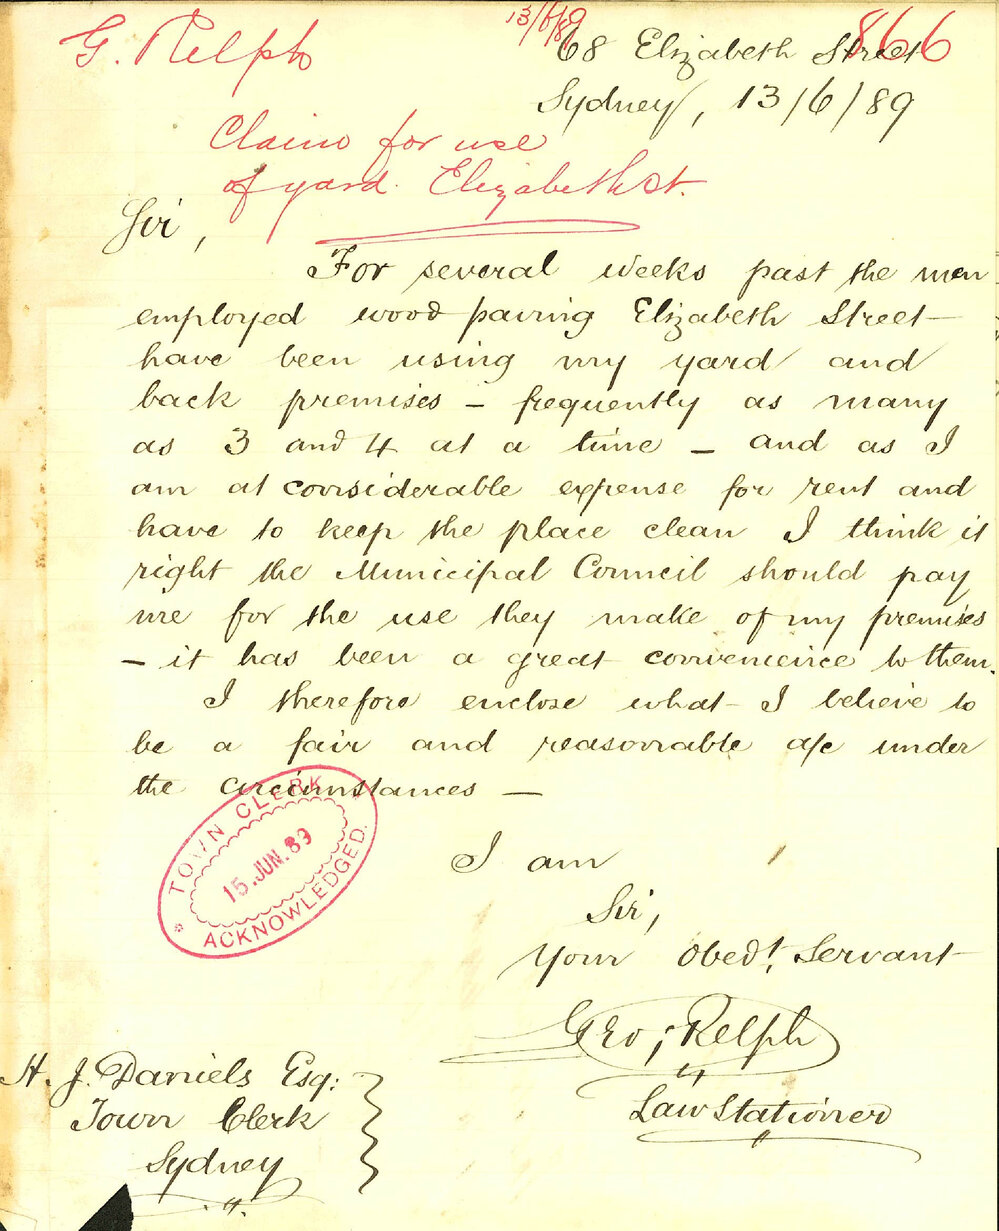 G. Relph
13/6/89
866
68 Elizabeth Street
Sydney, 13/6/89
Claim for use
of yard. Elizabeth St.
Sir,
For several weeks past the men
employed wood paving Elizabeth Street
have been using my yard and
back premises – frequently as many
as 3 and 4 at a time – and as I
am at considerable expense for rent and
have to keep the place clean I think it
right the Municipal Council should pay
me for the use they make of my premises
– it has been a great convenience to them.
I therefore enclose what I believe to
be a fair and reasonable a/c under
the circumstances –
TOWN CLERK
15. JUN. 89
ACKNOWLEDGED.
I am
Sir,
Your Obedt. Servant
Geo; Relph
Law Stationer
H. J. Daniels Esq:
Town Clerk
Sydney